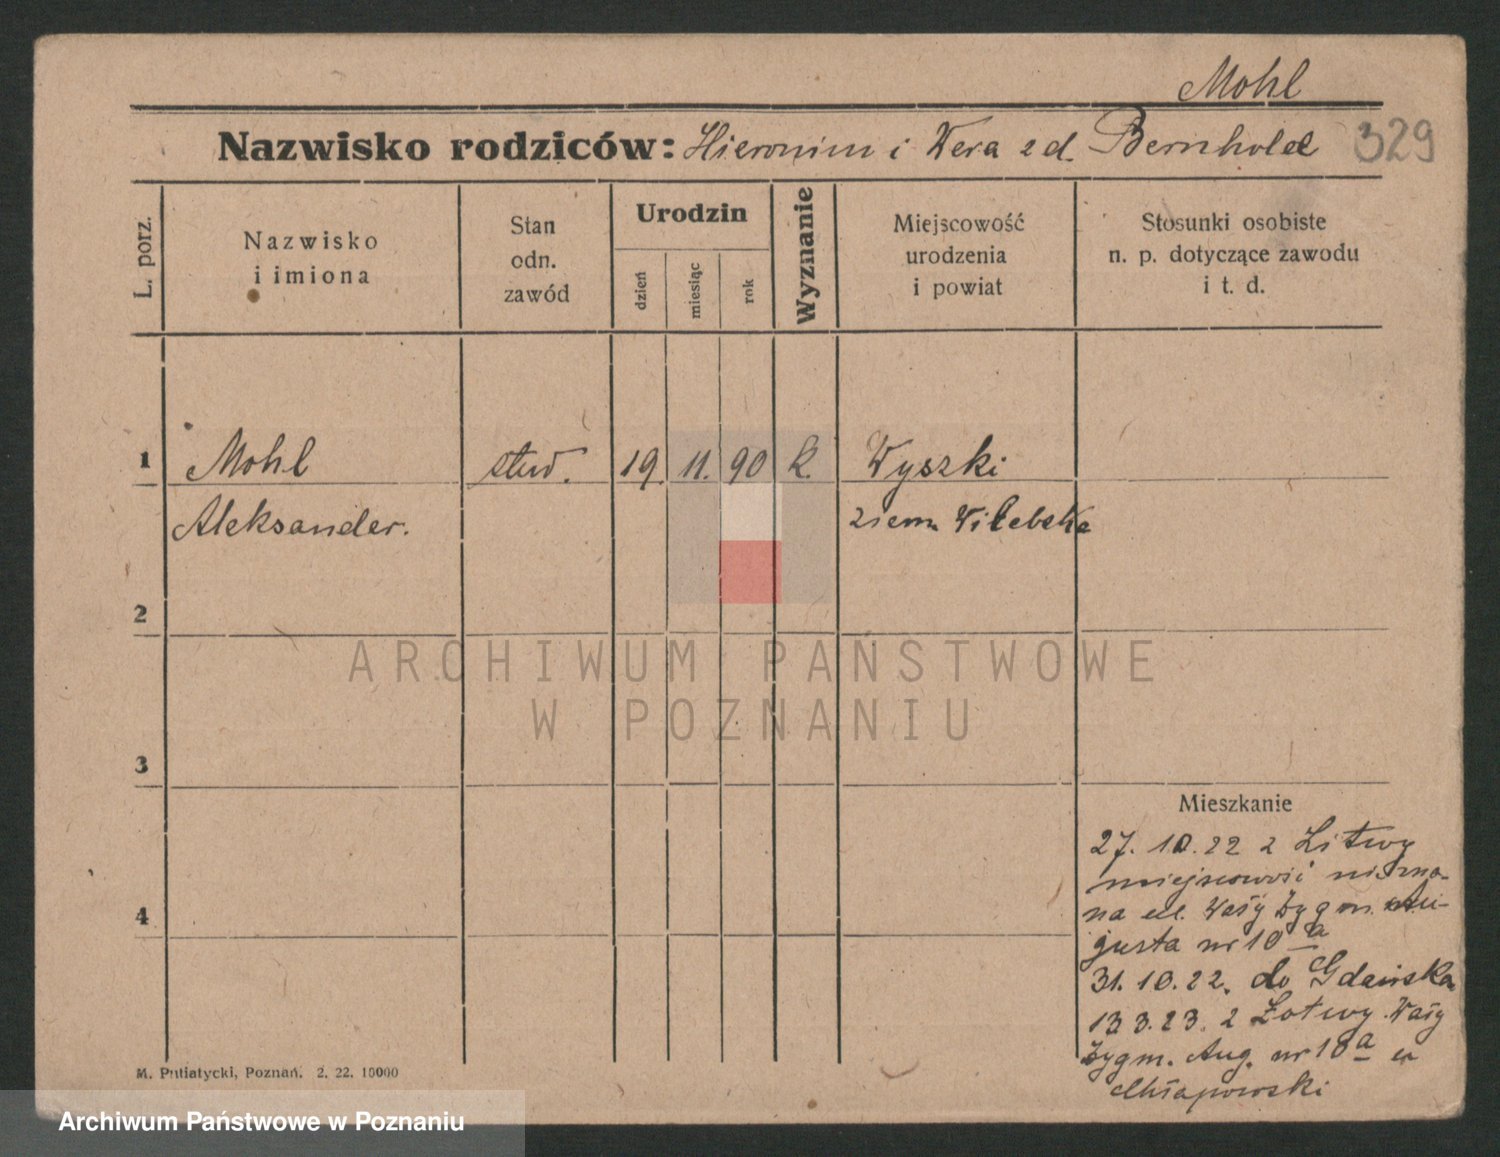 Mohl
Nazwisko rodziców: Hieronim i Wera z d. Bernholz 329
L. porz.
Nazwisko
i imiona
Stan
odn.
zawód
Urodzin
dzień
miesiąc
rok
Wyznanie
Miejscowość
urodzenia
i powiat
Stosunki osobiste
n. p. dotyczące zawodu
i t. d.
1 Mohl stud. 19. 11. 90 k. Wyszki
Aleksander. ziem. Witebska
2
3
4
ARCHIWUM PAŃSTWOWE
W POZNANIU
Mieszkanie
27. 10. 22 z Litwy
miejscowość niezna-
na ul. Wały Zygm. Au-
gusta nr 10 a
31. 10. 22. do Gdańska
13 3. 23. z Łotwy. Wały
Zygm. Aug. nr 10 a u
Chłapowski
M. Putiatycki, Poznań. 2. 22. 10000
Archiwum Państwowe w Poznaniu